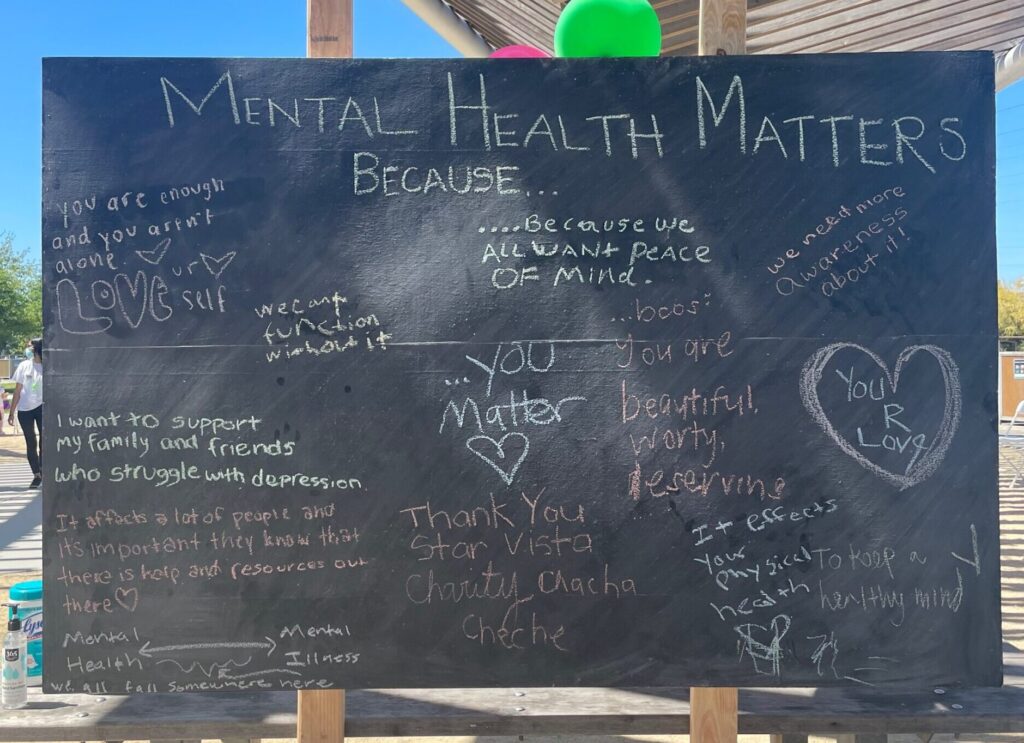 MENTAL HEALTH MATTERS
BECAUSE...
you are enough
and you arn't
alone
LOVE ur self
we cant
function
without it
....Because we
ALL WANT Peace
OF Mind.
we need more
awareness
about it!
...bcos:
you are
beautiful,
worty,
deserving
...you
Matter
You
R
Love
I want to support
my family and friends
who struggle with depression.
It affects a lot of people and
it's important they know that
there is help and resources out
there
Thank You
Star Vista
Charity Chacha
Cheche
It effects
your
physical
health
To keep a
healthy mind
Mental Health
Mental Illness
we all fall somewhere here
Lysol
365